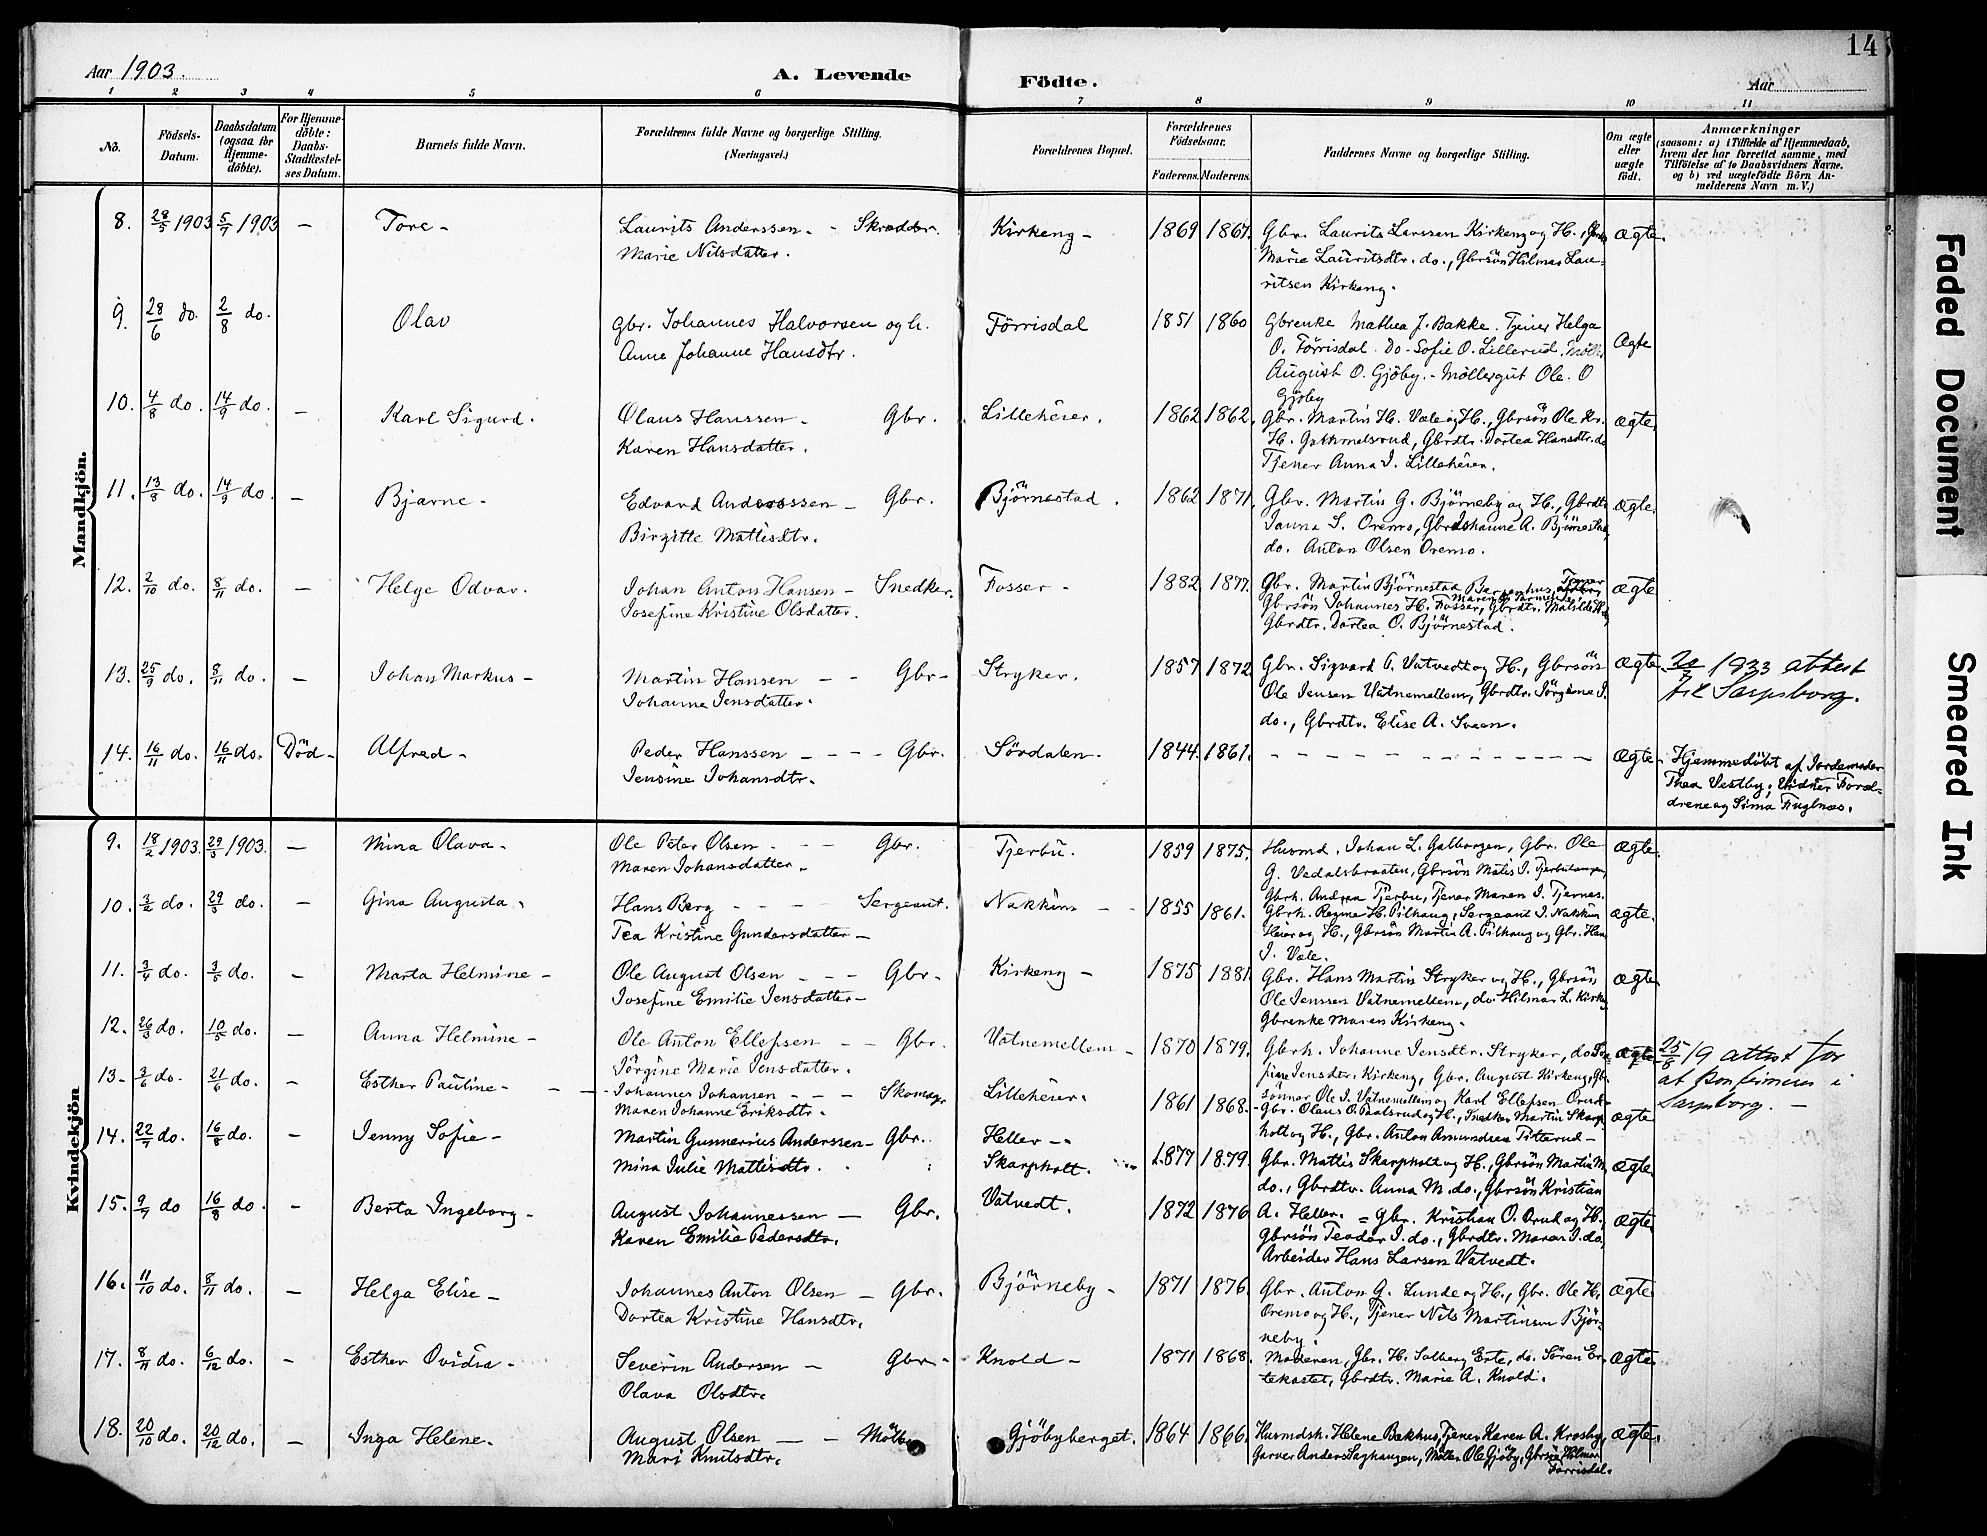 14
Aar 1903.
A. Levende Födte.
Aar
1 2 3 4 5 6 7 8 9 10 11
No.
Födsels-Datum.
Daabsdatum (ogsaa for Hjemme-döbte).
For Hjemme-döbte: Daabs-Stadfæstel-ses Datum.
Barnets fulde Navn.
Forældrenes fulde Navne og borgerlige Stilling.
(Næringsvei.)
Forældrenes Bopæl.
Forældrenes Födselsaar.
Faderens. Moderens.
Faddernes Navne og borgerlige Stilling.
Om ægte eller uægte födt.
Anmærkninger
(saasom: a) i Tilfælde af Hjemmedaab,
hvem der har forrettet samme, med
Tilföielse af to Daabsvidners Navne.
og b) ved uægtefödte Börn An-
melderens Navn m. V.)
Mandkjön.
8. 28/5 1903 5/7 1903 – Tore – Laurits Anderssen – Skrædder. Kirkeng – 1869 1867. Gbr. Laurits Larssen Kirkeng og H., ægte.
Marie Nilsdatter. Marie Lauritsdtr. do., Gbrsön Hilmar Lau-
ritsen Kirkeng.
9. 28/6 do. 2/8 do. Olav Gbr. Johannes Halvorsen og h. Förrisdal 1851 1860 Gbrenke Mathea J. Bakke. Tjener Helga Ægte
Anne Johanne Hansdtr. O. Förrisdal. Do- Sofie O. Lillerud.
August O. Gjöby. – Möllergut Ole. O
Gjöby
10. 4/8 do. 14/9 do. – Karl Sigurd. Olaus Hanssen – Gbr. Lilleheier. 1862 1862. Gbr. Martin H. Vale og H., Gbrsön Ole Kr. ægte.
Karen Hansdatter. H. Gathmelsrud, Gbrdtr. Dortea Hansdtr. do
Tjener Anna I. Lilleheien.
11. 13/8 do. 14/9 do. – Bjarne – Edvard Anderssen – Gbr. Björnestad. 1862 1871. Gbr. Martin G. Björneby og H., Gbrdtr. ægte.
Birgitte Mattisdtr. S. Oremo, Johanne A. Björnestad
do. Anton Olsen Oremo.
12. 2/10 do. 8/11 do. – Helge Odvar. Johan Anton Hansen – Snedker. Fosser – 1882 1877. Gbr. Martin Björnestad, Tjener ægte
Josefine Kristine Olsdatter. Gbrsön Johannes H. Fosser, Gbrdtr.
Gbrdtr. Dortea O. Björnestad.
13. 25/9 do. 8/11 do. – Johan Markus – Martin Hansen – – Gbr – Stryker. 1857 1872 Gbr. Sigvard A. Vatvedt og H., Gbrsön ægte. 1933 attest
Johanne Jensdatter. Ole Jensen Vatnemellem, Gbrdtr. Jörgine J. til Sarpsborg.
do., Gbrdtr. Elise A. Sveen.
14. 16/11 do. 16/11 do. Död – Alfred – Peder Hanssen – – – Gbr. Sördalen – 1844. 1861. – – – – ægte – Hjemmedöbt af Jordemoder
Jensine Johansdtr. Thea Vestby; Vidner Foræl-
drene og Sima Fuglnæs.
Kvindekjön
9. 18/2 1903. 29/3 1903. – Mina Olava – Ole Peter Olsen – – Gbr. Tjerbu. 1859 1875. Husmd. Johan L. Galbergen, Gbr. Ole ægte.
Maren Johansdatter. G. Vedalsbraaten, Gbrsön Matis J. Tjerbutangen,
10. 3/2 do. 29/3 do. – Gina Augusta. Hans Berg – – – Sergeant. Nakkim – – 1855 1861. Gbrh. Andrea Tjerbu, Tjener Maren I. Tjernes. ægte.
Tea Kristine Gundersdatter – Gbrh. Regine H. Pilhaug, Sergeant J. Nakkim
Heier og H., Gbrsön Martin A. Pilhaug og Gbr. Hans
J. Vale.
11. 3/4 do. 3/5 do. – Marta Helmine – Ole August Olsen – – – Gbr – Kirkeng – 1875 1881. Gbr. Hans Martin Stryker og H., Gbrsön ægte.
Josefine Emilie Jensdatter – Ole Jenssen Vatnemellem, do. Hilmar L. Kirke
Gbrenke Maren Kirkeng.
12. 26/3 do. 10/5 do. – Anna Helmine – Ole Anton Ellefsen – – Gbr. Vatnemellem – 1870 1879. Gbrh. Johanne Jensdtr. Stryker, do. Jose- ægte 25/8 19 attest for
Jörgine Marie Jensdatter. fine Jensdtr. Kirkeng, Gbr. August Kirkeng, Gbr. at konfirmeres i
sönner Ole J. Vatnemellem og Karl Ellefsen Orud. Sarpsborg. –
13 – 3/6 do. 21/6 do. – Esther Pauline – – – Johannes Johansen – – – Skomagr Lilleheier. 1861 1868. – Gbr. Olaus O. Dalsrud og H., Snedker Martin Skarp- ægte
Maren Johanne Eriksdtr. holt og H., Gbr. Anton Amundsen Titterud –
14. 22/7 do. 16/8 do. – Jenny Sofie – Martin Gunnerius Anderssen – Gbr. Heller – 1877 1879. Gbr. Mattis Skarpholt og H., Gbrsön Martin M. ægte
Mina Julie Mattisdtr. Skarpholt. do., Gbrdtr. Anna M. do., Gbrsön Kristian
15. 9/7 do 16/8 do. – Berta Ingeborg – August Johannessen – Gbr. Vatvedt. 1872 1876 A. Heller. = Gbr. Kristian O. Orud og H., ægte
Karen Emilie Pedersdtr. Gbrsön Teodor J. do., Gbrdtr. Maren J. do,
Arbeider Hans Larsen Vatvedt.
16. 11/10 do. 8/11 do. – Helga Elise – Johannes Anton Olsen – Gbr. Björneby – 1871 1876. Gbr. Anton G. Lunde og H., Gbr. Ole H. ægte
Dortea Kristine Hansdtr. Oremo og H., Tjener Nils Martinsen Björ-
neby.
17. 8/11 do. 6/12 do. – Esther Ovidia – Severin Andersen – Gbr – Knold – 1871 1868. Moderen, Gbr. H. Solberg Erte, do. Sören Er- ægte.
Olava Olsdtr. tekastet, Gbrdtr. Marie A. Knold.
18. 20/10 do. 20/12 do. – Inga Helene. August Olsen – – Möller Gjöbyberget. 1864 1866. Husmdsk. Helene Bakhus, Tjener Karen A. Krosby, ægte.
Mari Knutsdtr. Garver Anders Saghaugen, Möller Ole Gjöby, Gbrsön Hilmar
Förrisdal.
Faded Document
Smeared Ink